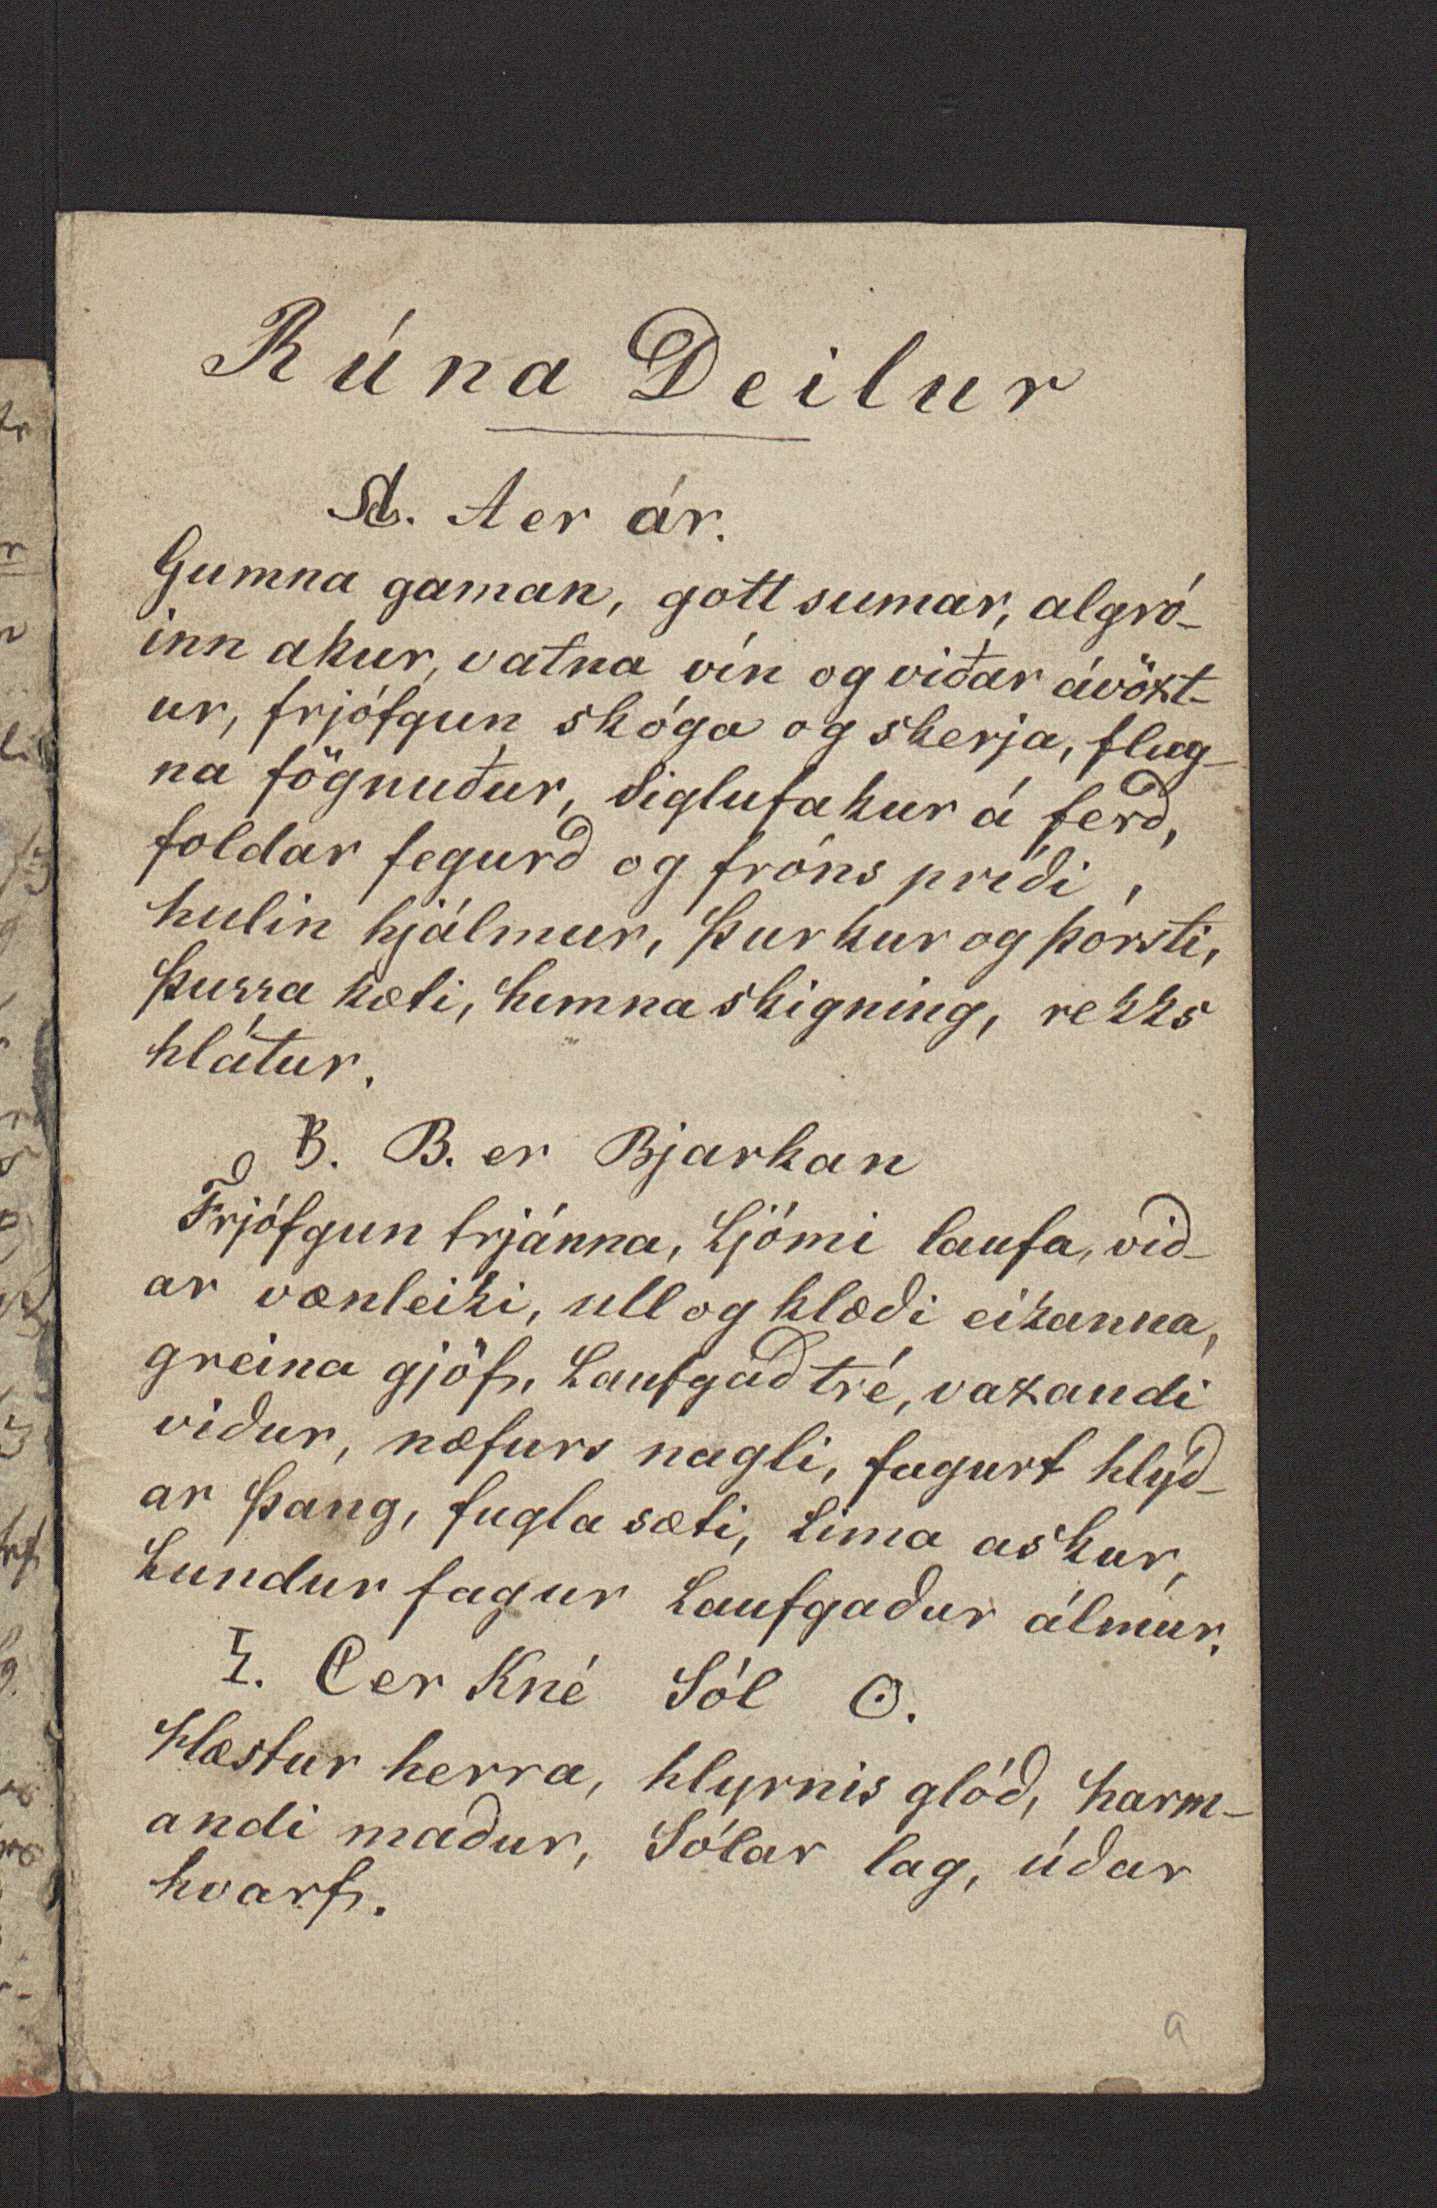 Rúna Deilur
A. A er ár.
Gumna gaman, gott sumar, algró-
inn akur, vatna vín og viðar ávöxt-
ur, frjófgun skóga og skerja, flug-
na fögnuður, siglufakur á ferð,
foldar fegurð og fróns príði,
hulin hjálmur, Þurkur og þórsti,
Þussa kæti, himna skigning, rekks
hlátur.
B. B. er Bjarkan
Frjófgun trjánna, Ljómi laufa, við-
ar vænleiki, ull og klæði eikanna,
greina gjöf, Laufgað tré, vaxandi
viður, næfurs nagli, fagurt hlýð-
ar Þang, fugla sæti, Lima askur,
Lundur fagur Laufgaður álmur.
C er Kné Sól ʘ.
Hæstur herra, hlyrnis glóð, harm-
andi maður, Sólar lag, úðar
hvarf.
9